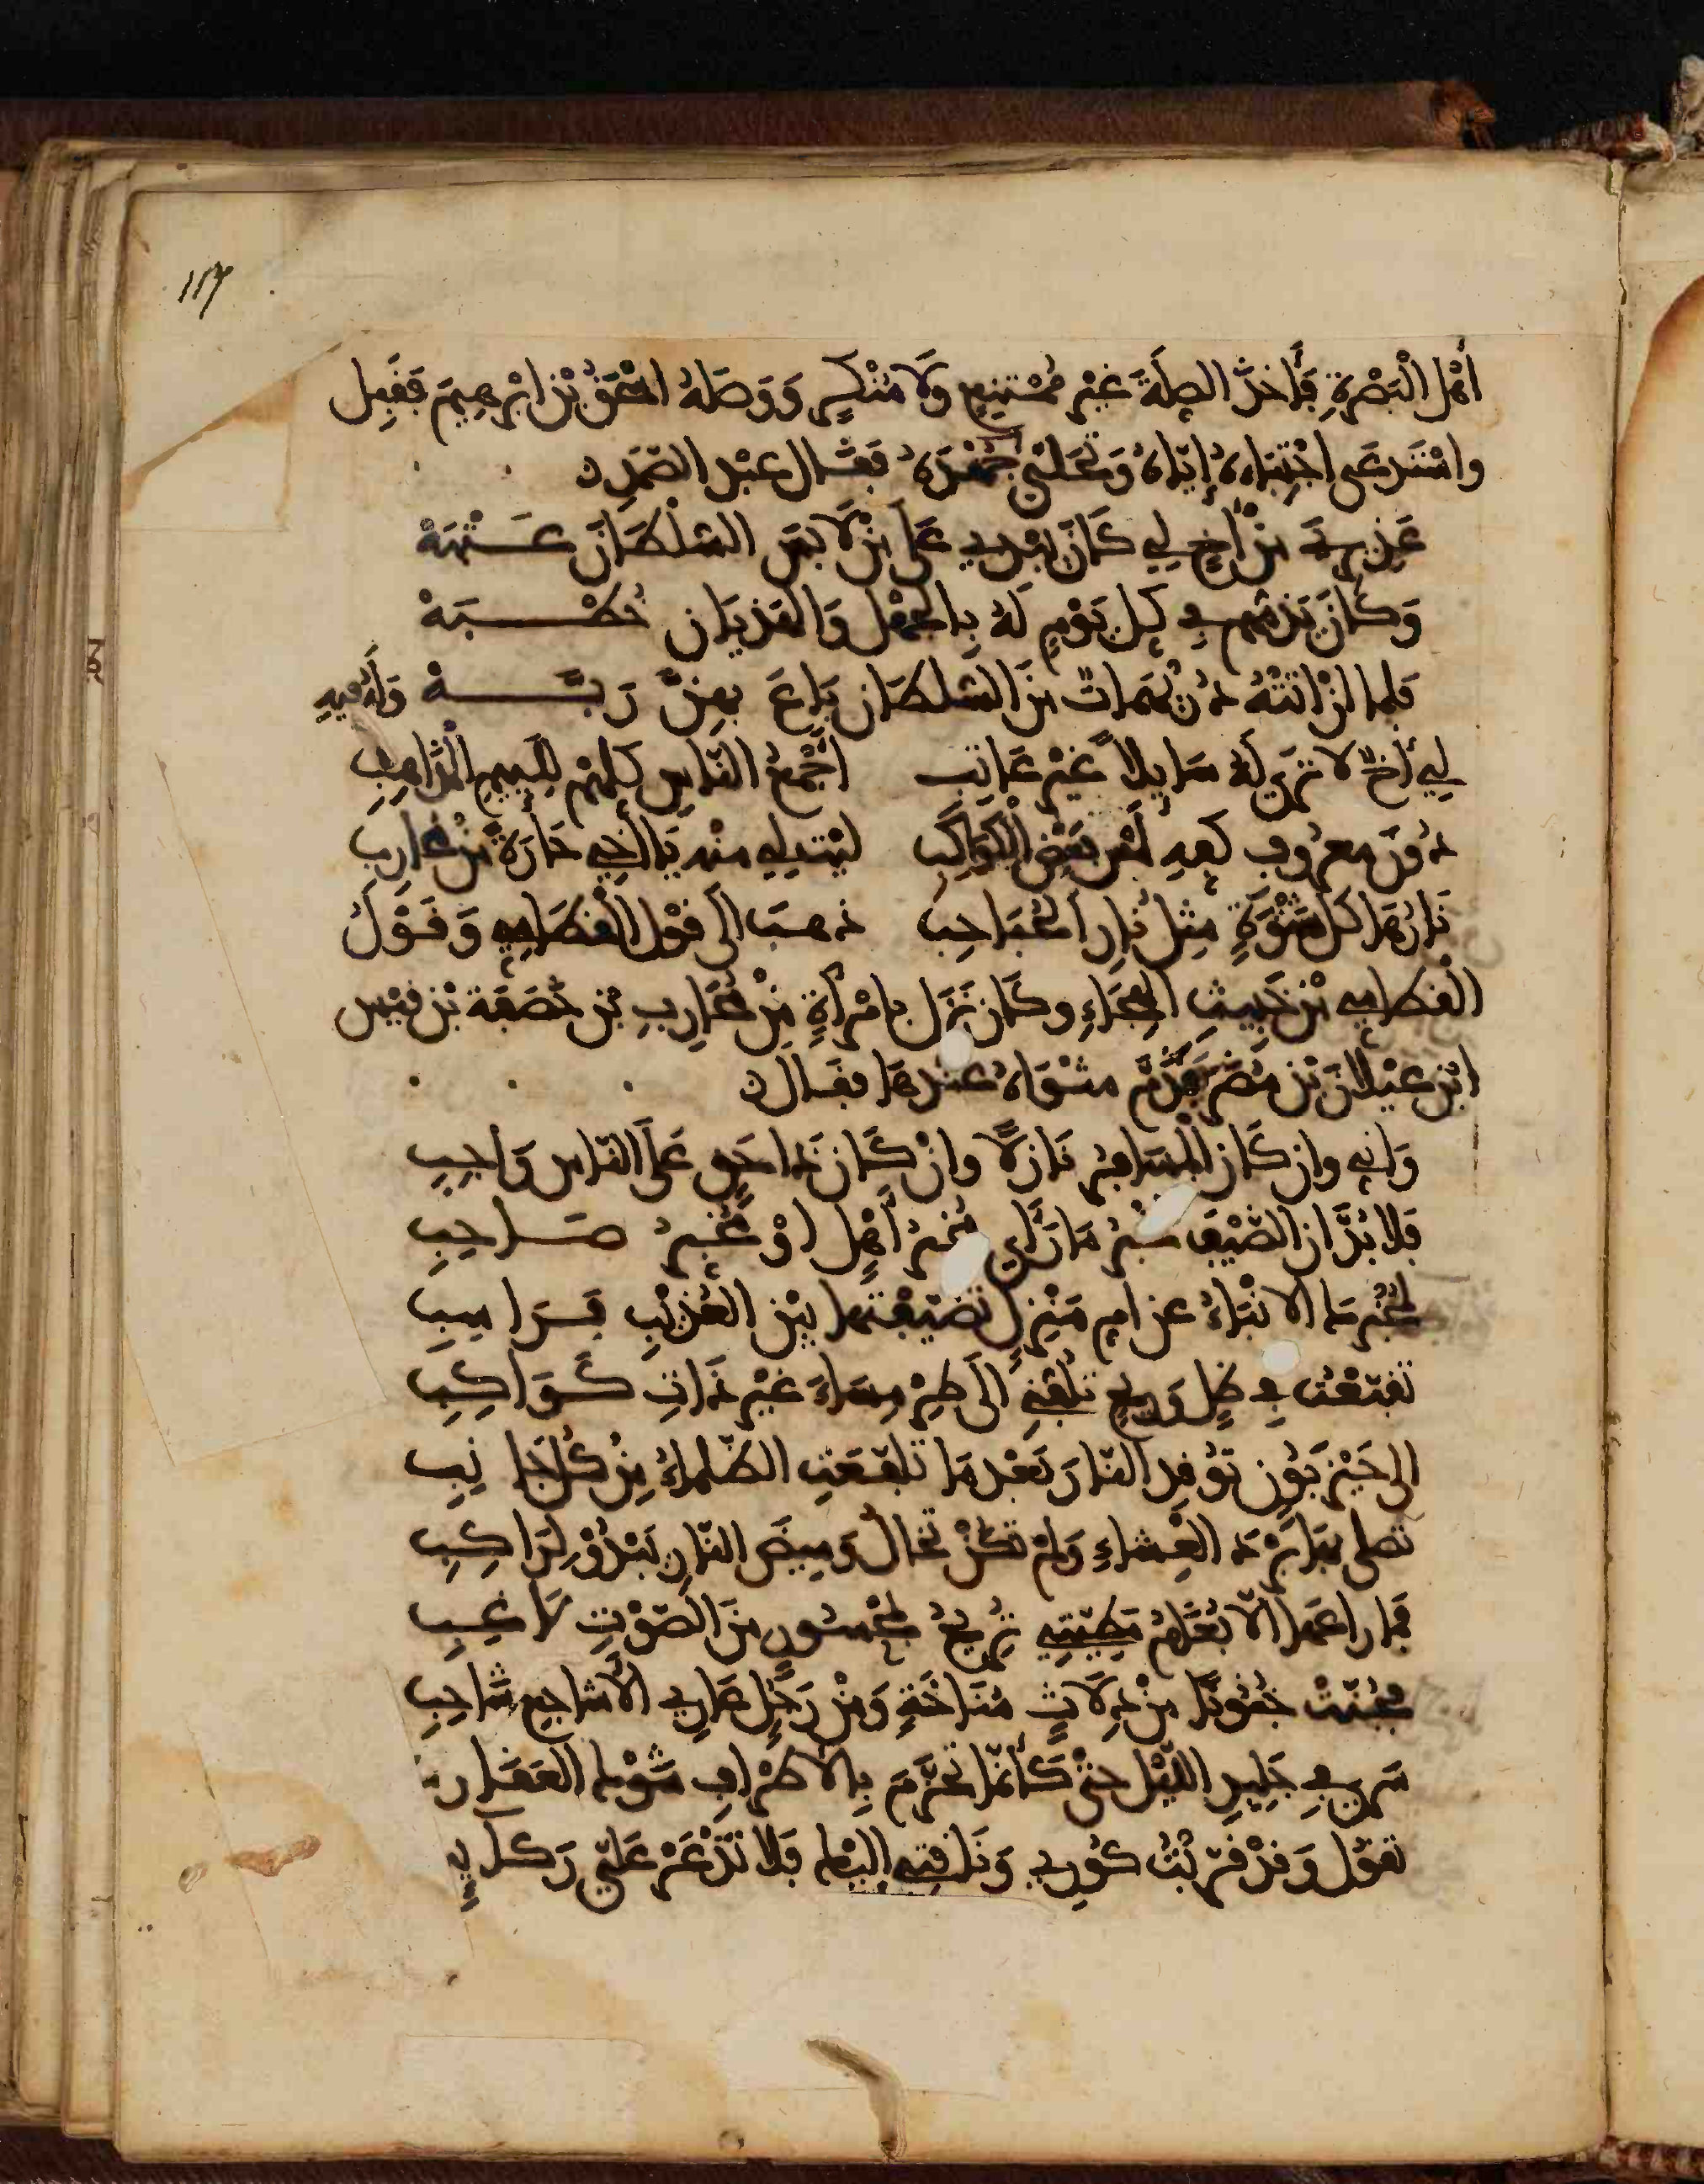 117
أهْل البَصْرةِ فَأخذَ الصِلَةَ غيْر مُمْتنِعٍ ولا مُنْكِرٍ وَوَصَلهُ اسْحٰقُ بْن ابْرهِيمَ فقَبِل
واسْتَدعَى اجْتِبَاءهُ إيّاهُ فقال عبْد الصّمَدِ
عَذِيرِيَ مِنْ أَخٍ لِي كَانَ يُبْدِي عَلَى مَنْ لابَسَ السُّلْطَانَ عَتْبَهْ
وَكَانَ يَذمّهم فِي كلّ يَوْمٍ لَهُ بِالجَهْل وَالهَذيَان خُطْبَهْ
فَلما انْ اتَتْهُ دُرَيْهِمَاتٌ مِنَ السُّلطَان بَاعَ بهِنَّ رَبَّهْ وَلَهُ فيهِ
لِي أخٌ لا تَرَى لَهُ سَايِلًا غيْر عَاتب أجْمَعُ النّاسِ كلهِمْ لِلَّيِيمِ المَذَاهِبِ
دُونَ معرُوفِ كفهِ لمْسُ بَعْضِ الْكَوَاكِبِ لَيْتَ لِي مِنْه يَا أخِي جَارَةً مِنْ مُحَارِبِ
نَارُهَا كلّ شَتْوَةٍ مِثلُ نَارِ الحُبَاحِب ذهبَ الَى قوْل القُطَامِي وَقَوْلُ
القطامِي مِنْ خَبِيثِ الهِجَاءِ وكَان نَزل بامْرأةٍ مِنْ مُحَارِبِ بْن خَصَفَة بْن قيْس
ابْن عيْلان بْن مُضَر مثْوَاهُ عنْدهَا فقال
وَانِي وان كَان المُسَافِرُ نَازِلًا وانْ كَان ذا حَقٍ عَلى النّاس وَاجِبِ
فلا بُدَّ ان الضّيْفَ مُخبِرُ مَا رَأى مُخَبِّرُ أهْلٍ اوْ مُخَبِّرُ صَاحِبِ
لَمُخْبِرُكَ الانْبَاءَ عن امِ مَنْزِلٍ تَضَيّفْتُها بيْن العُذيْبِ فَرَاسِبِ
تَلَفّعْتُ فِي طَلٍّ وَرِيحٍ تَلُفُّنِي وَفِي طِرْمِسَاءَ غيْر ذَاتِ كَوَاكِبِ
الى حَيْزبُونٍ تُوقِد النّارَ بَعْد مَا تَلفّعَتِ الظّلماءُ مِنْ كُلّ جَانِبِ
تَصلى بهَا بَرْدَ العِشَاءِ وَلمْ تكُنْ تخَالُ وَمِيضَ النّارِ يَبْدُوْ لِرَاكِبِ
فمَا رَاعَهَا الّا بُغَامُ مَطِيّتِي تُرِيحُ بمَحْسُورٍ مِنَ الصّوْتِ لَاغِبِ
فجُنّتْ جُنُونًا مِنْ دِلَاثٍ مُنَاخَةٍ وَمِنْ رَجُلٍ عَارِي الأشَاجِعِ شَاحِبِ
سَرَى فِي جَلِيدِ اللّيْل حتّى كأنّما تَحَزّمَ بِالأَطْرَافِ شَوْكُ العَقَارِبِ
تقوُل وَقدْ قرّبْتُ كُورِي وَنَاقتِي إليْكَ فَلا تَذْعَرْ عَلَيّ رَكَايِبِي